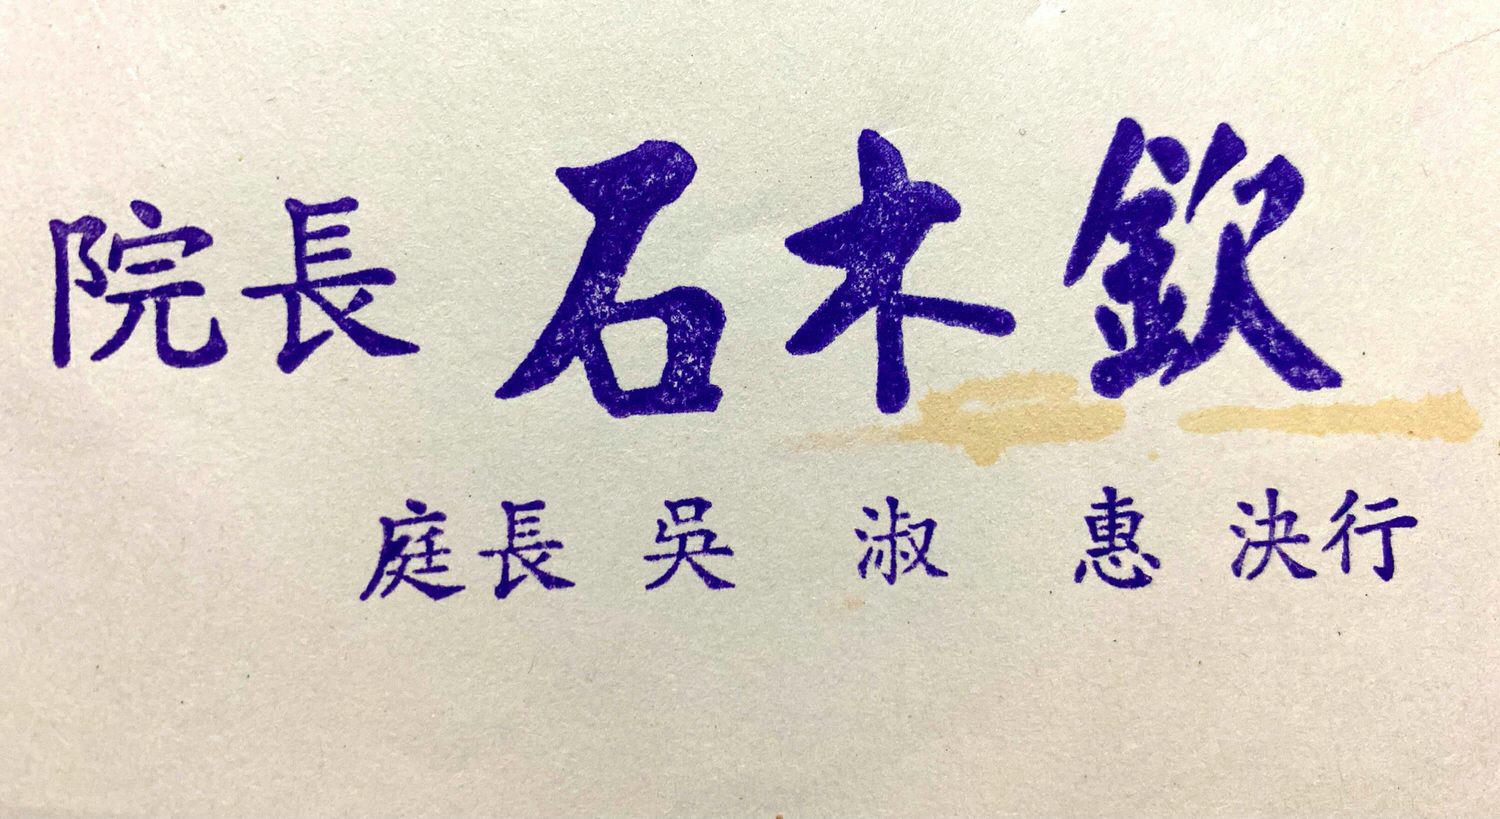 院長 石木欽
庭長 吳 淑 惠 決行